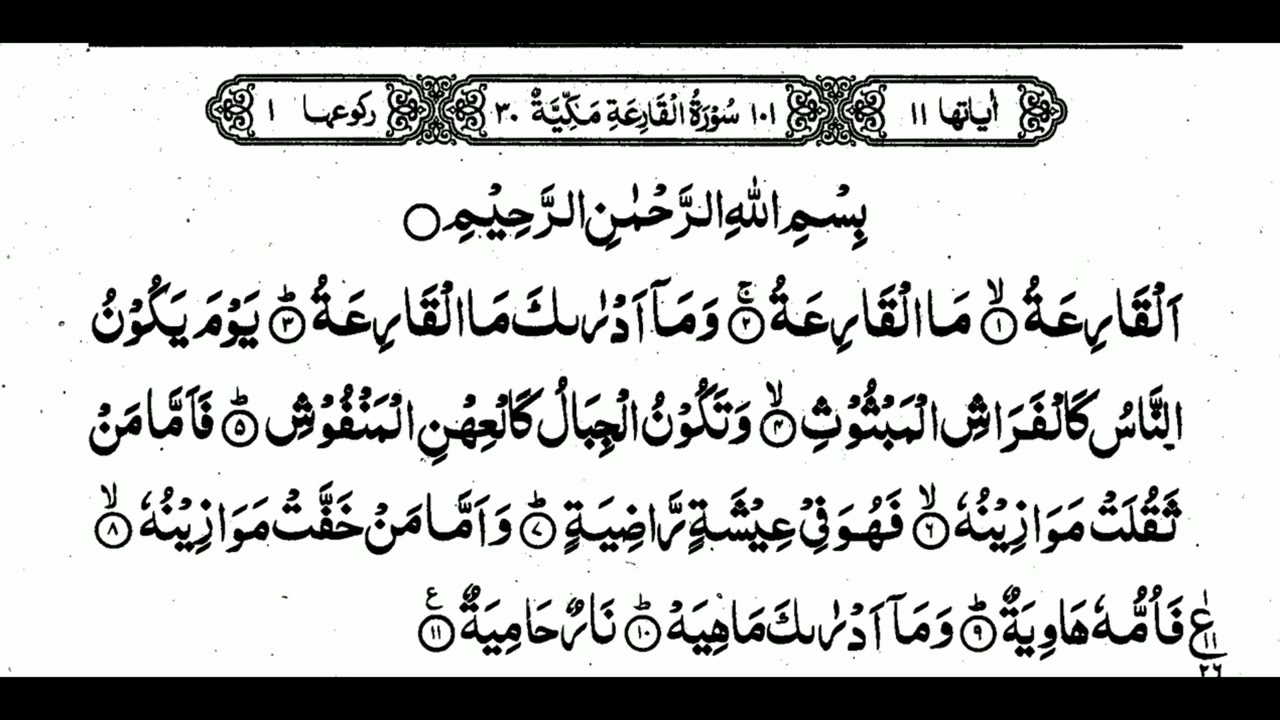 اٰياتها ۱۱ ۱۰۱ سُوْرَةُ الْقَارِعَةِ مَكِّيَّةٌ ۳۰ ركوعها ۱
بِسْمِ اللهِ الرَّحْمٰنِ الرَّحِيْمِ ○
اَلْقَارِعَةُ ۙ﴿۱﴾ مَا الْقَارِعَةُ ۚ﴿۲﴾ وَمَاۤ اَدْرٰىكَ مَا الْقَارِعَةُ ؕ﴿۳﴾ يَوْمَ يَكُوْنُ
النَّاسُ كَالْفَرَاشِ الْمَبْثُوْثِ ۙ﴿۴﴾ وَتَكُوْنُ الْجِبَالُ كَالْعِهْنِ الْمَنْفُوْشِ ؕ﴿۵﴾ فَاَمَّا مَنْ
ثَقُلَتْ مَوَازِيْنُهٗ ۙ﴿۶﴾ فَهُوَ فِيْ عِيْشَةٍ رَّاضِيَةٍ ؕ﴿۷﴾ وَاَمَّا مَنْ خَفَّتْ مَوَازِيْنُهٗ ۙ﴿۸﴾
فَاُمُّهٗ هَاوِيَةٌ ؕ﴿۹﴾ وَمَاۤ اَدْرٰىكَ مَاهِيَهْ ؕ﴿۱۰﴾ نَارٌ حَامِيَةٌ ﴿۱۱﴾ ع
ع ۱ ۱۱ ۲۶